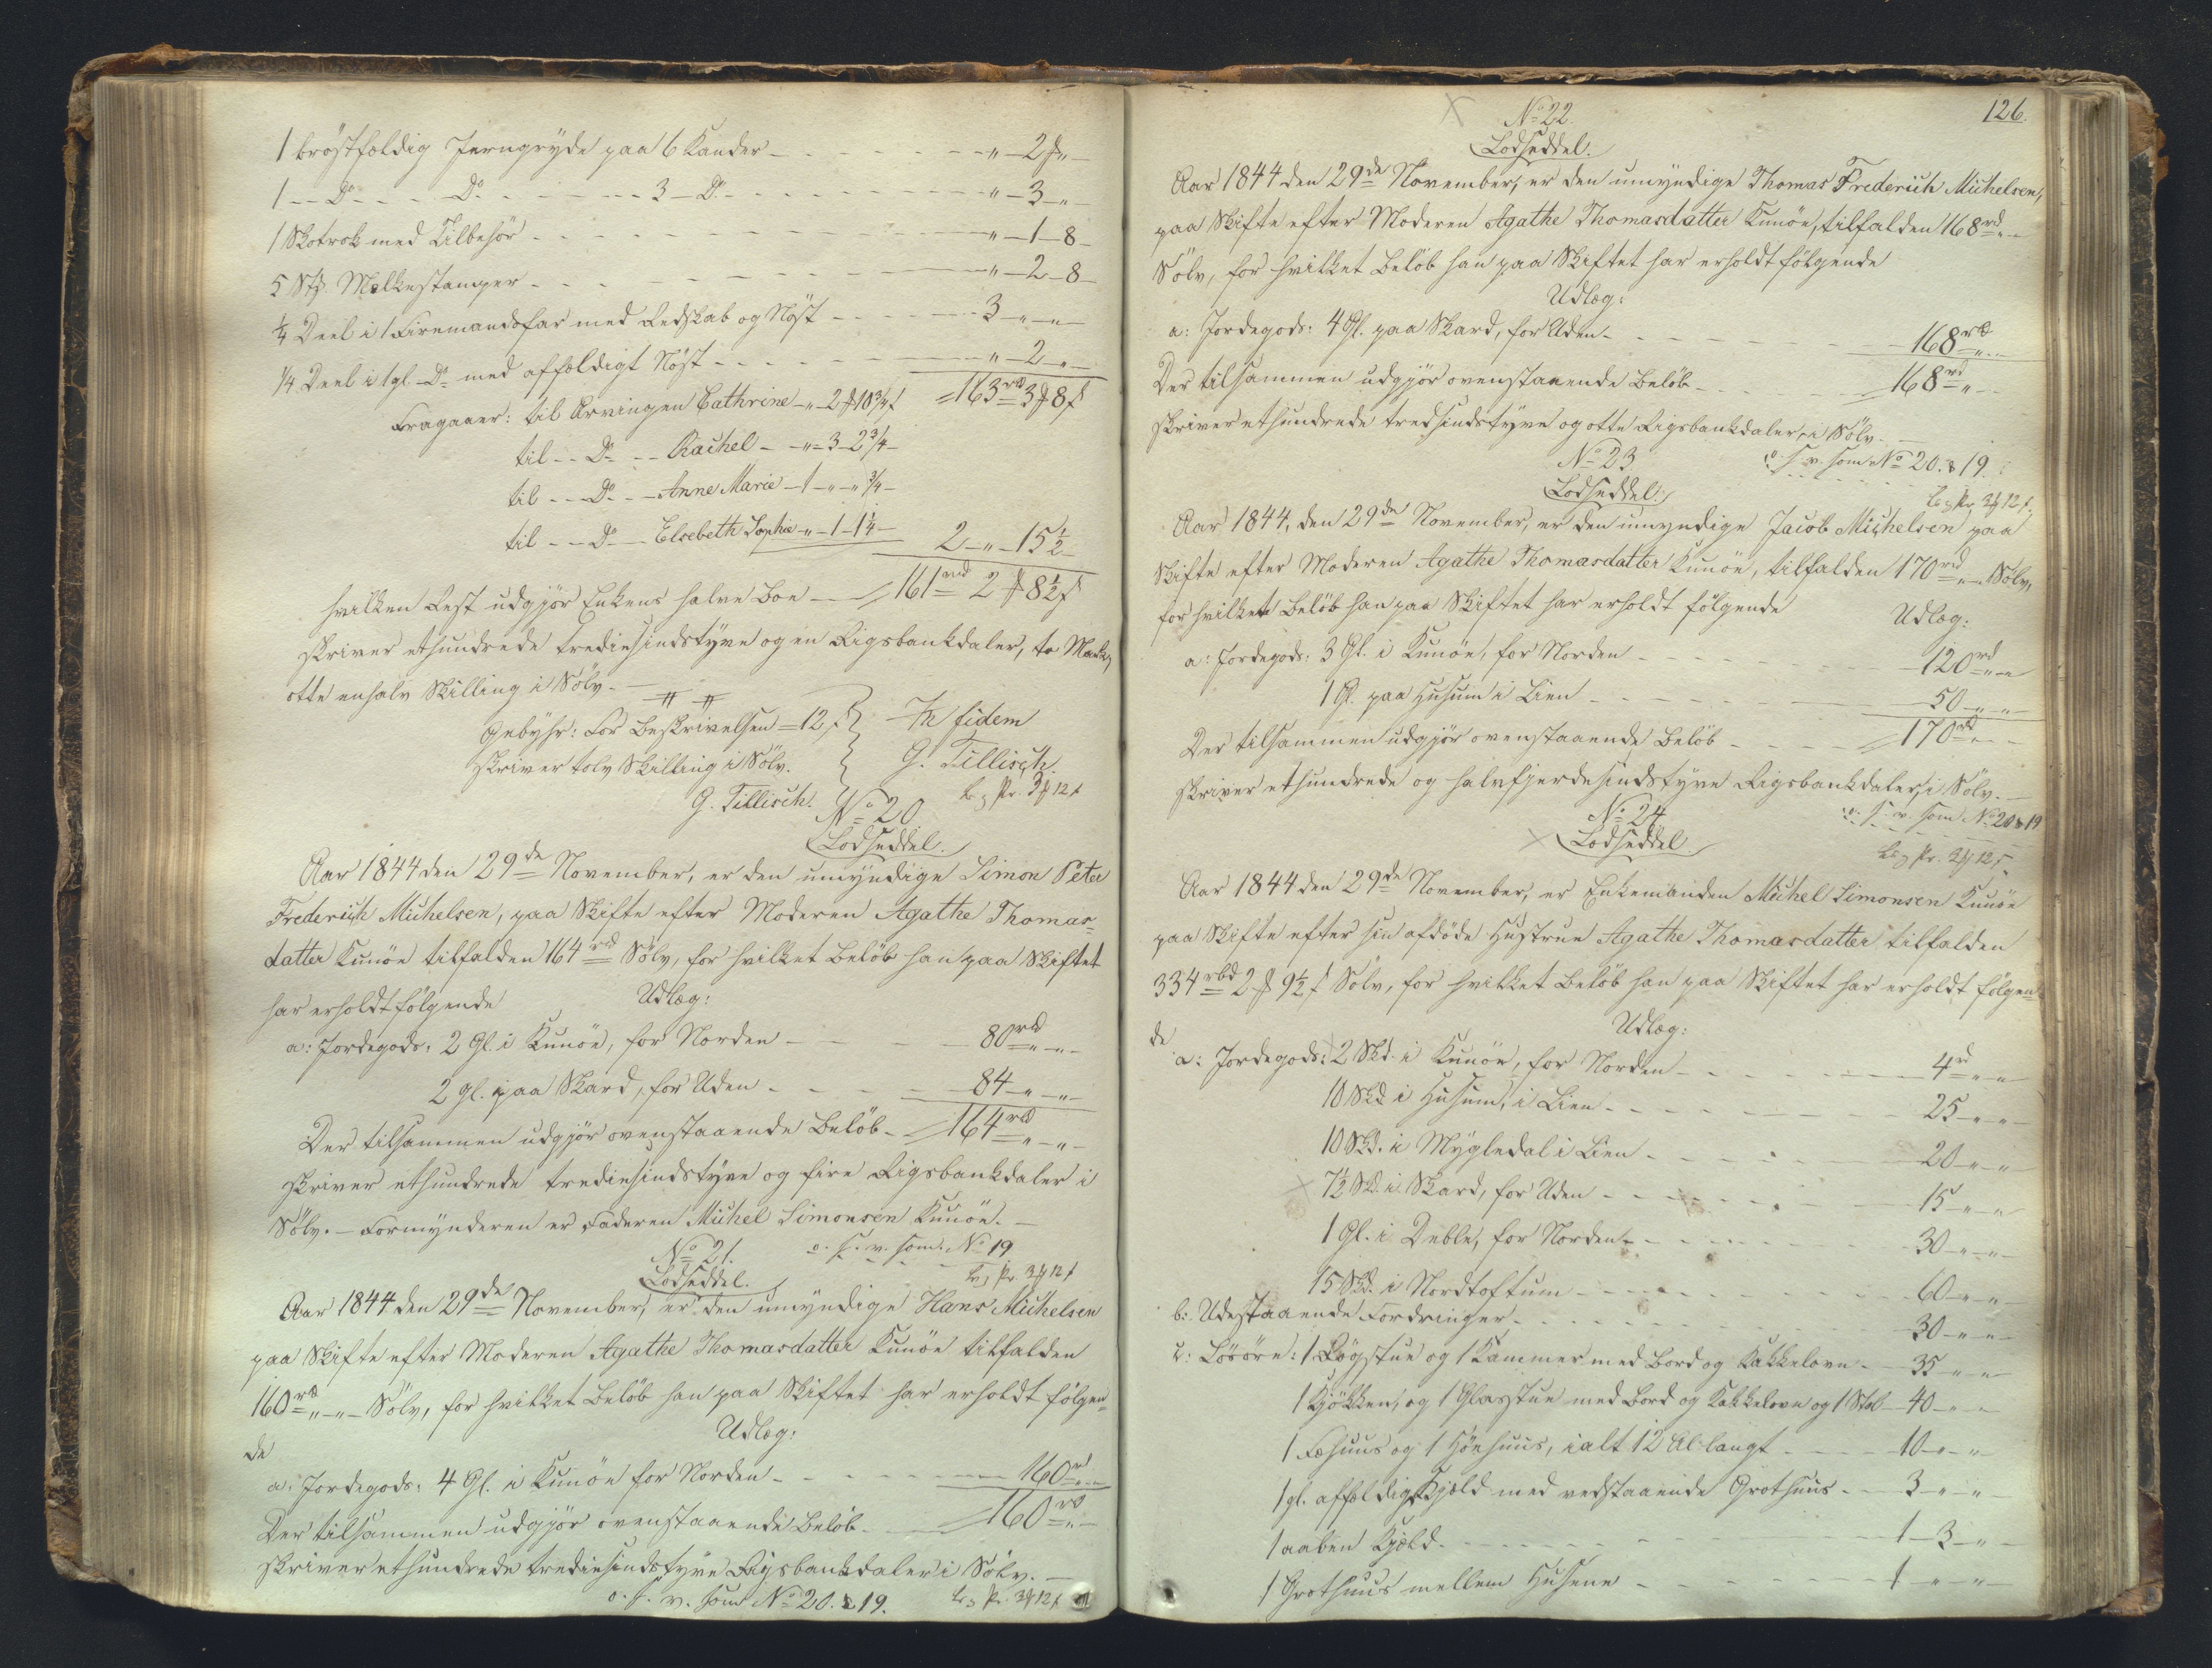 1 brøstfældig Jerngryde paa 6 Kander - - - " - 2 ₰ "
1 - - Do - - - Do - - - 3 - Do - - - " - 3 - "
1 Skotrok med Tilbehør - - - " - 1 - 8 -
5 Stk Malkestamper - - - " - 2 - 8 -
¼ Deel i 1 Firemandsfar med Redskab og Nøst - - - 3 - " - "
1/4 Deel i 1 gl. Do med affældigt Nøst - - - " - 2 - "
Fragaaer: til Arvingen Cathrine - " - 2 ₰ 10¾ s = 163 rbd 3 ₰ 8 s
til - - Do - - Rachel - - " - 3 - 2¾ -
til - - Do - - Anne Marie - 1 - " - " ¾ -
til - - Do - - Elsebeth Sophie - " - 1 - 1¼ - 2 - " - 15½ -
hvilken Rest udgjør Enkens halve Boe - - 161 rbd 2 ₰ 8½ s
skriver ethundrede trediesindstyve og en Rigsbankdaler, to Mark,
otte enhalv Skilling i Sølv. -
Gebyhr: For Beskrivelsen = 12 s } In fidem
skriver tolv Skilling i Sølv. } G. Tillisch.
G. Tillisch. 3 ₰ 12 s
No 20
Lodseddel.
Aar 1844 den 29de November, er den umyndige Simon Peter
Frederich Michelsen, paa Skifte efter Moderen Agathe Thomas-
datter Kunöe tilfalden 164 rbd Sølv, for hvilket Beløb han paa Skiftet
har erholdt følgende Udlæg:
a: Jordegods: 2 Gl. i Kunöe, for Norden - - - 80 rbd " - "
2 Gl. paa Skard, for Uden - - - 84 - " - "
Der tilsammen udgjør ovenstaaende Beløb - 164 rbd " - "
skriver ethundrede trediesindstyve og fire Rigsbankdaler i
Sølv. - Formynderen er Faderen Michel Simonsen Kunöe. -
o. s. v. som No 19
3 ₰ 12 s
No 21.
Lodseddel.
Aar 1844 den 29de November, er den umyndige Hans Michelsen
paa Skifte efter Moderen Agathe Thomasdatter Kunöe tilfalden
160 rbd " - " - Sølv, for hvilket Beløb han paa Skiftet har erholdt følgen-
de Udlæg:
a: Jordegods: 4 Gl. i Kunöe for Norden - - - 160 rd " - "
Der tilsammen udgjør ovenstaaende Beløb - - 160 rbd " -
skriver ethundrede trediesindstyve Rigsbankdaler i Sølv. -
o. s. v. som No 20. & 19. 3 ₰ 12 s
126.
No 22.
Lodseddel.
Aar 1844 den 29de November, er den umyndige Thomas Frederich Michelsen,
paa Skifte efter Moderen Agathe Thomasdatter Kunöe, tilfalden 168 rd " -
Sølv, for hvilket Beløb han paa Skiftet har erholdt følgende
Udlæg:
a: Jordegods: 4 Gl. paa Skard, for Uden - - - 168 rbd " -
Der tilsammen udgjør ovenstaaende Beløb - - 168 rd " -
skriver ethundrede tredsindstyve og otte Rigsbankdaler, i Sølv. -
o. s. v. som No 20. & 19.
3 ₰ 12 s
No 23
Lodseddel.
Aar 1844, den 29de November, er den umyndige Jacob Michelsen paa
Skifte efter Moderen Agathe Thomasdatter Kunöe, tilfalden 170 rd " - Sølv,
for hvilket Beløb han paa Skiftet har erholdt følgende Udlæg:
a: Jordegods: 3 Gl. i Kunöe, for Norden - - - 120 rd " - "
1 Gl. paa Husum i Lien - - - 50 - " - "
Der tilsammen udgjør ovenstaaende Beløb - - - 170 rd " -
skriver ethundrede og halvfjerdesindstyve Rigsbankdaler, i Sølv. -
o. s. v. som No 20 & 19
3 ₰ 12 s
No 24
Lodseddel
Aar 1844 den 29de November, er Enkemanden Michel Simonsen Kunöe
paa Skifte efter sin afdöde Hustrue Agathe Thomasdatter tilfalden
334 rbd 2 ₰ 9½ s Sølv, for hvilket Beløb han paa Skiftet har erholdt følgen-
de Udlæg:
a: Jordegods: 2 Skd. i Kunöe, for Norden - - - 4 rd " - "
10 Skd i Husum, i Lien - - - 25 - " - "
10 Skd. i Mygledal i Lien - - - 20 - " - "
7½ Skd. i Skard, for Uden - - - 15 - " - "
1 Gl. i Deble, for Norden - - - 30 - " - "
15 Skd. i Nordtoftum - - - 60 - " - "
b: Udestaaende Fordringer - - - 30 - " - "
c: Løsøre: 1 Røgstue og 1 Kammer med Bord og Kakkelovn - 35 - " - "
1 Kjøkken, og 1 Glasstue med Bord og Kakkelovn og 1 Stol - 40 - " - "
1 Fæhuus og 1 Høehuus, ialt 12 Al. langt - - - 10 - " - "
1 gl. affældig Kjæld med vedstaaende Grothuus - - 3 - " - "
1 aaben Kjæld - - - 1 - 3 - "
1 Grothuus mellem Husene - - - 1 - " - "